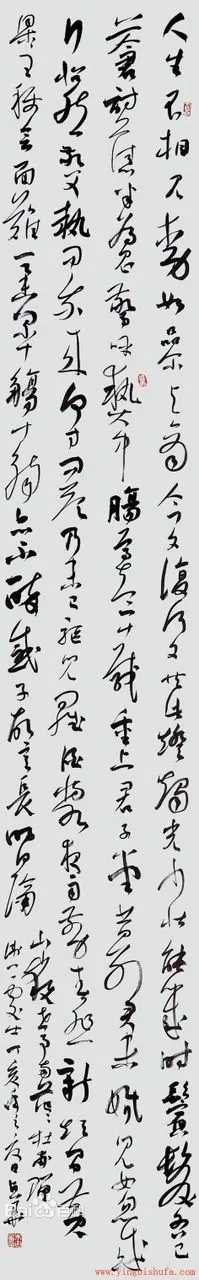 人生不相见动如参与商今夕复何夕共此灯烛光少壮能几时鬓发各已
苍访旧半为鬼惊呼热中肠焉知二十载重上君子堂昔别君未婚儿女忽成
行怡然敬父执问我来何方问答乃未已驱儿罗酒浆夜雨剪春韭新炊间黄
粱主称会面难一举累十觞十觞亦不醉感子故意长明日隔
山岳世事两茫茫杜甫赠
卫八处士丁亥
Bai百科
www.yingbishufa.com